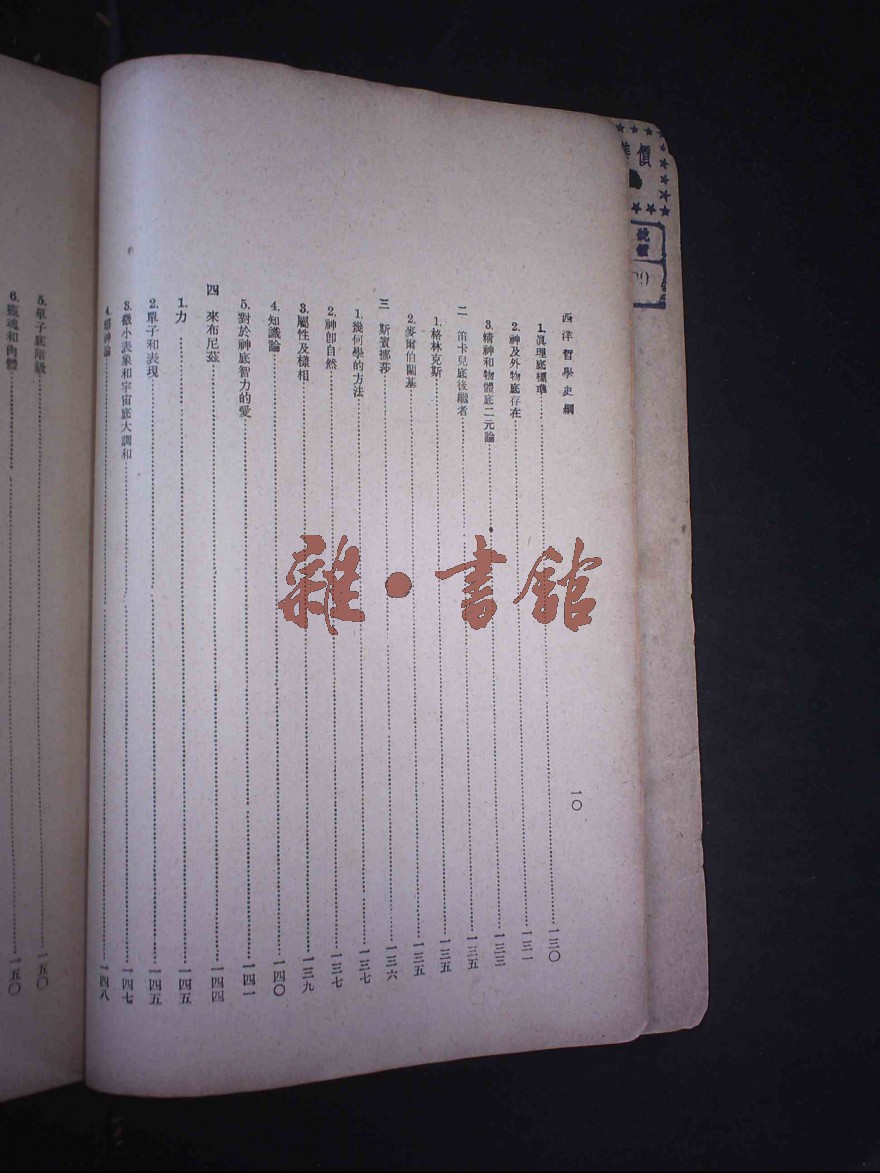 西洋哲學史綱
一〇
1. 眞理底標準……一三〇
2. 神及外物底存在……一三一
3. 精神和物體底二元論……一三三
二 笛卡兒底後繼者……一三五
1. 格林克斯……一三五
2. 麥爾伯蘭基……一三五
三 斯賓挪莎……一三六
1. 幾何學的方法……一三七
2. 神卽自然……一三七
3. 屬性及樣相……一三九
4. 知識論……一四〇
5. 對於神底智力的愛……一四一
四 來布尼茲……一四四
1. 力……一四五
2. 單子和表現……一四五
3. 微小表象和宇宙底大調和……一四七
4. 辯神論……一四八
5. 單子底階級……一五〇
6. 靈魂和肉體……一五〇
價
雜·書館